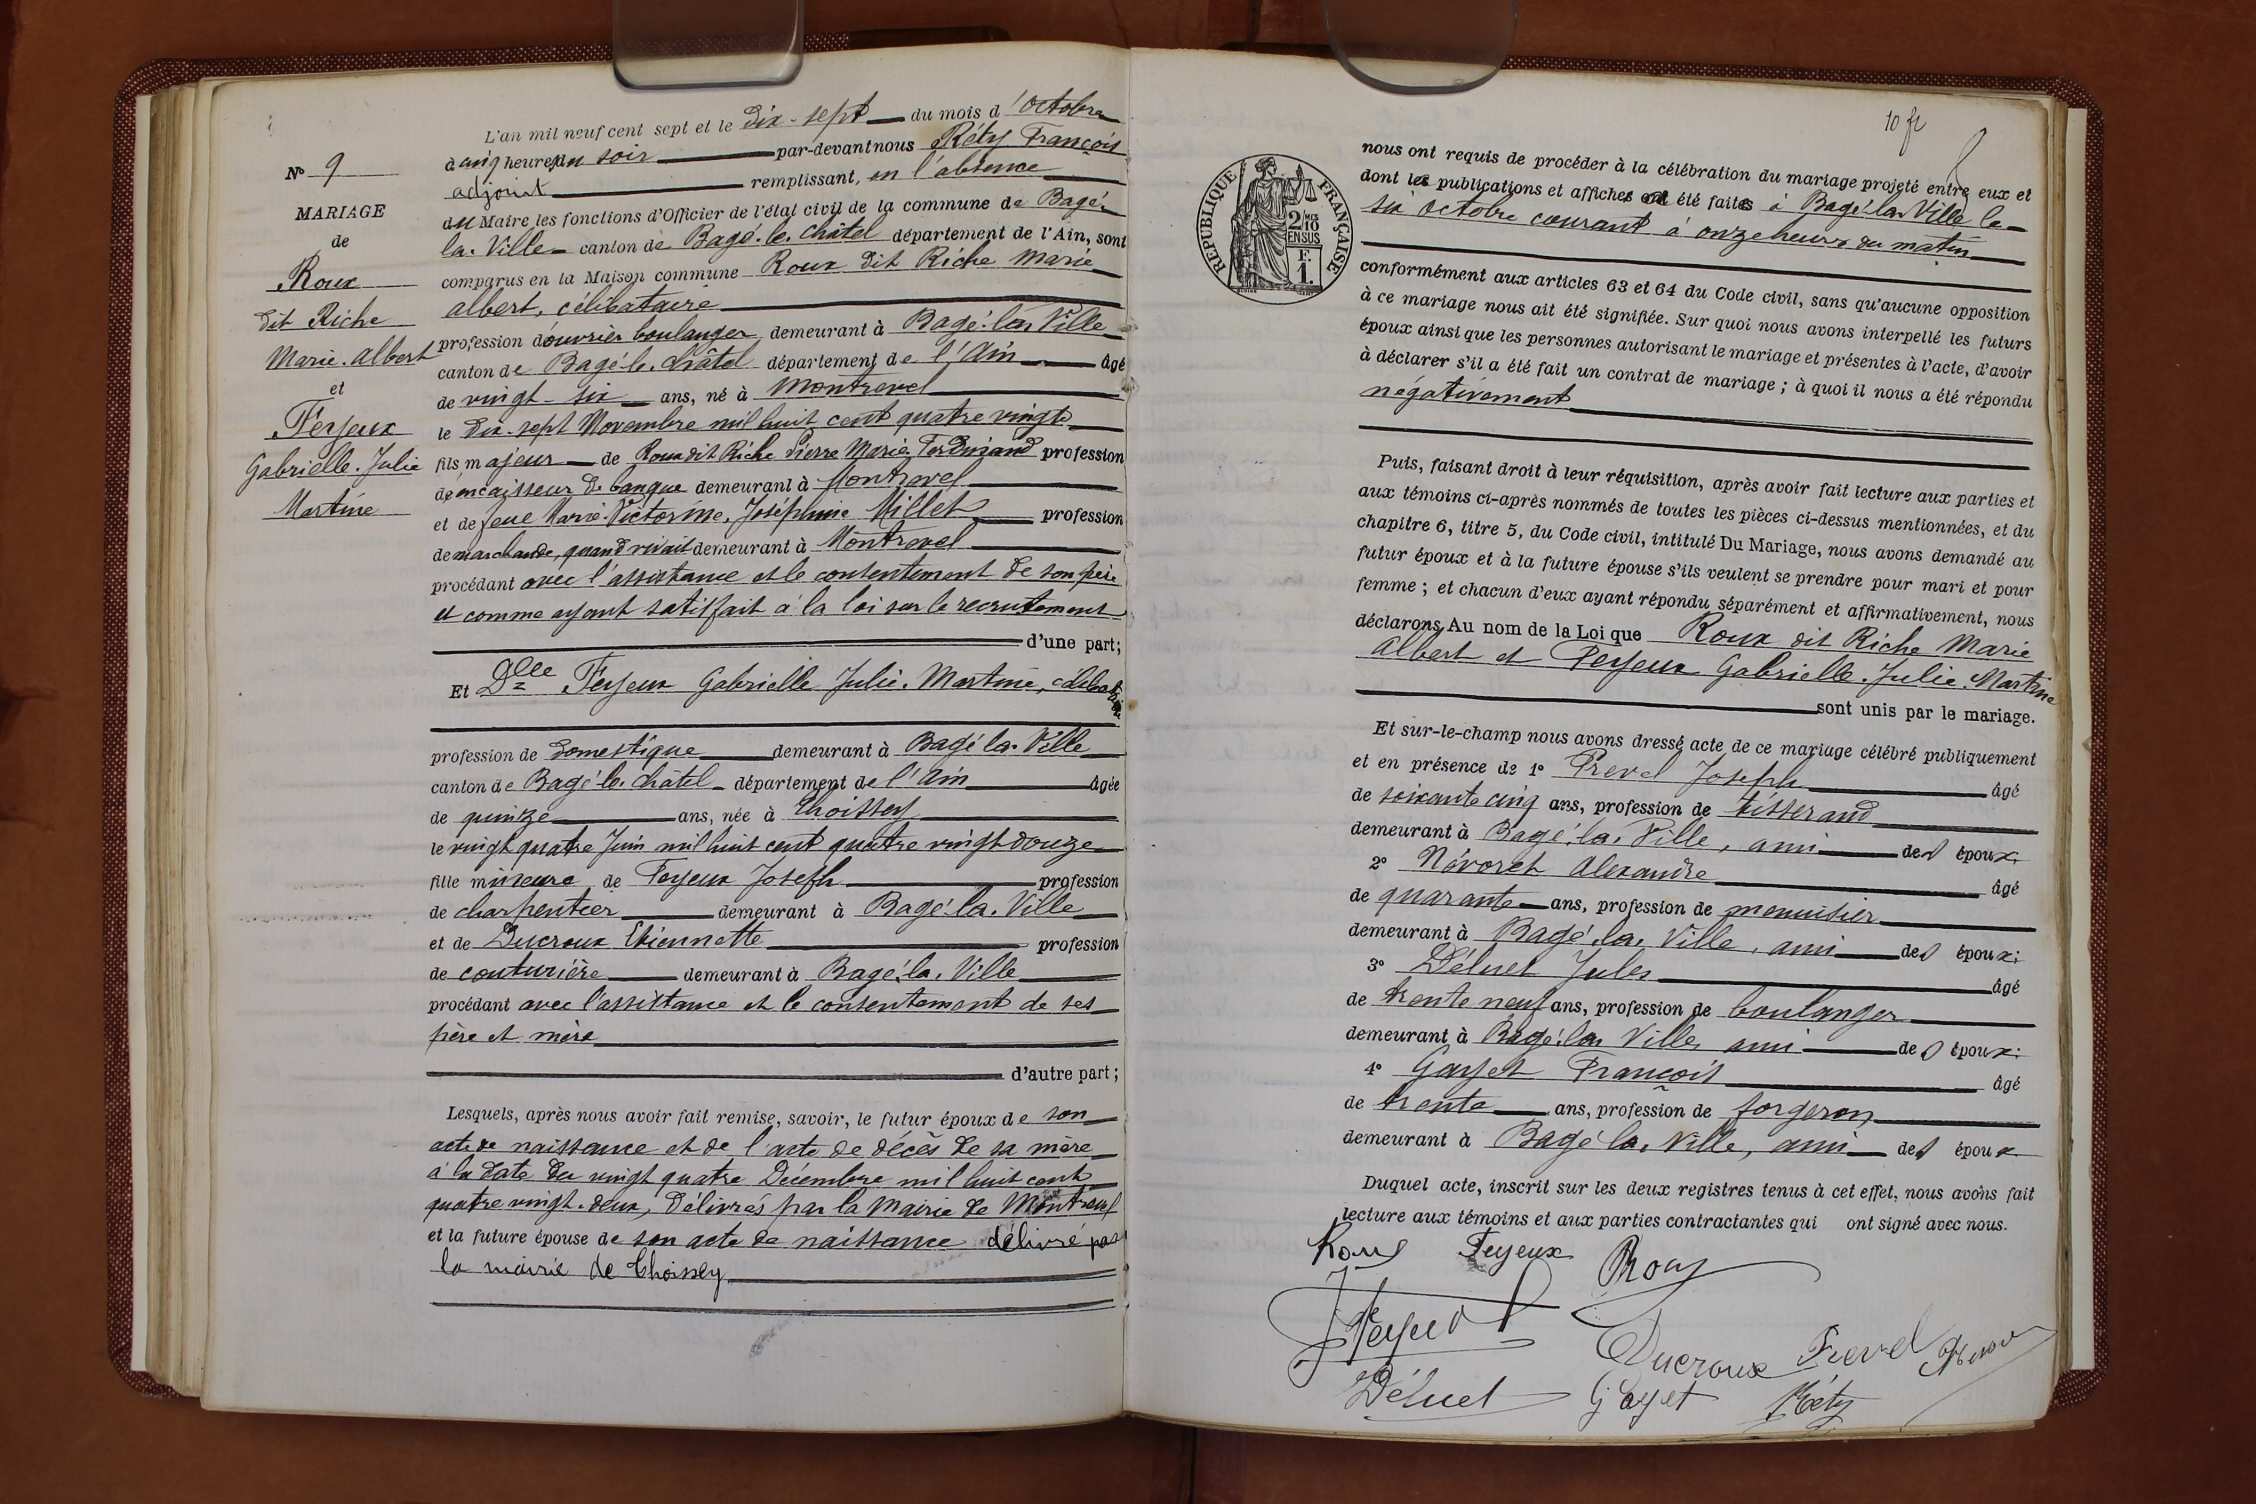 N° 9
MARIAGE
de
Roux
dit Riche
Marie-Albert
et
Feyeux
Gabrielle-Julie
Martine
L'an mil neuf cent sept et le dix-sept du mois d'octobre
à cinq heures du soir par-devant nous Réty François
adjoint remplissant, en l'absence
du Maire les fonctions d'Officier de l'état civil de la commune de Bagé-
la-Ville canton de Bagé-le-Châtel département de l'Ain, sont
comparus en la Maison commune Roux dit Riche Marie
albert, célibataire
profession d'ouvrier boulanger demeurant à Bagé-la-Ville
canton de Bagé-le-Châtel département de l'Ain âgé
de vingt-six ans, né à Montrevel
le dix-sept Novembre mil huit cent quatre vingt
fils majeur de Roux dit Riche Pierre Marie Ferdinand profession
de encaisseur de banque demeurant à Montrevel
et de feue Marie-Victorine, Joséphine Millet profession
de marchande, quand vivait demeurant à Montrevel
procédant avec l'assistance et le consentement de son père
et comme ayant satisfait à la loi sur le recrutement
d'une part;
Et Dlle Feyeux Gabrielle Julie-Martine, célibataire
profession de domestique demeurant à Bagé-la-Ville
canton de Bagé-le-Châtel département de l'Ain âgée
de quinze ans, née à Thoissey
le vingt quatre Juin mil huit cent quatre vingt douze
fille mineure de Feyeux Joseph profession
de charpentier demeurant à Bagé-la-Ville
et de Ducroux Etiennette profession
de couturière demeurant à Bagé-la-Ville
procédant avec l'assistance et le consentement de ses
père et mère
d'autre part;
Lesquels, après nous avoir fait remise, savoir, le futur époux de son
acte de naissance et de l'acte de décès de sa mère
à la date du vingt quatre Décembre mil huit cent
quatre vingt-deux, délivrés par la Mairie de Montrevel
et la future épouse de son acte de naissance délivré par
la mairie de Thoissey
10 fr
RÉPUBLIQUE FRANÇAISE
2/10
EN SUS
F.
1.
nous ont requis de procéder à la célébration du mariage projeté entre eux et
dont les publications et affiches ont été faites à Bagé-la-Ville le
six octobre courant à onze heures du matin
conformément aux articles 63 et 64 du Code civil, sans qu'aucune opposition
à ce mariage nous ait été signifiée. Sur quoi nous avons interpellé les futurs
époux ainsi que les personnes autorisant le mariage et présentes à l'acte, d'avoir
à déclarer s'il a été fait un contrat de mariage; à quoi il nous a été répondu
négativement
Puis, faisant droit à leur réquisition, après avoir fait lecture aux parties et
aux témoins ci-après nommés de toutes les pièces ci-dessus mentionnées, et du
chapitre 6, titre 5, du Code civil, intitulé Du Mariage, nous avons demandé au
futur époux et à la future épouse s'ils veulent se prendre pour mari et pour
femme; et chacun d'eux ayant répondu séparément et affirmativement, nous
déclarons Au nom de la Loi que Roux dit Riche Marie
Albert et Feyeux Gabrielle-Julie-Martine
sont unis par le mariage.
Et sur-le-champ nous avons dressé acte de ce mariage célébré publiquement
et en présence de 1° Prevel Joseph âgé
de soixante cinq ans, profession de tisserand
demeurant à Bagé-la-Ville, ami des époux;
2° Névoret Alexandre âgé
de quarante ans, profession de menuisier
demeurant à Bagé-la-Ville, ami des époux;
3° Déluet Jules âgé
de trente neuf ans, profession de boulanger
demeurant à Bagé-la-Ville, ami des époux;
4° Gayet François âgé
de trente ans, profession de forgeron
demeurant à Bagé-la-Ville, ami des époux
Duquel acte, inscrit sur les deux registres tenus à cet effet, nous avons fait
lecture aux témoins et aux parties contractantes qui ont signé avec nous.
Roux Feyeux Roux
Feyeux
Ducroux Prevel
Déluet Gayet Réty